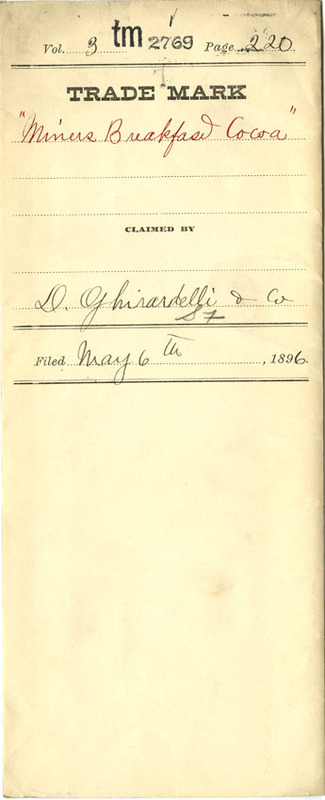 Vol. 3 tm 2769 Page 220
TRADE MARK
"Miners Breakfast Cocoa"
CLAIMED BY
D. Ghirardelli & Co
Filed May 6th, 1896.